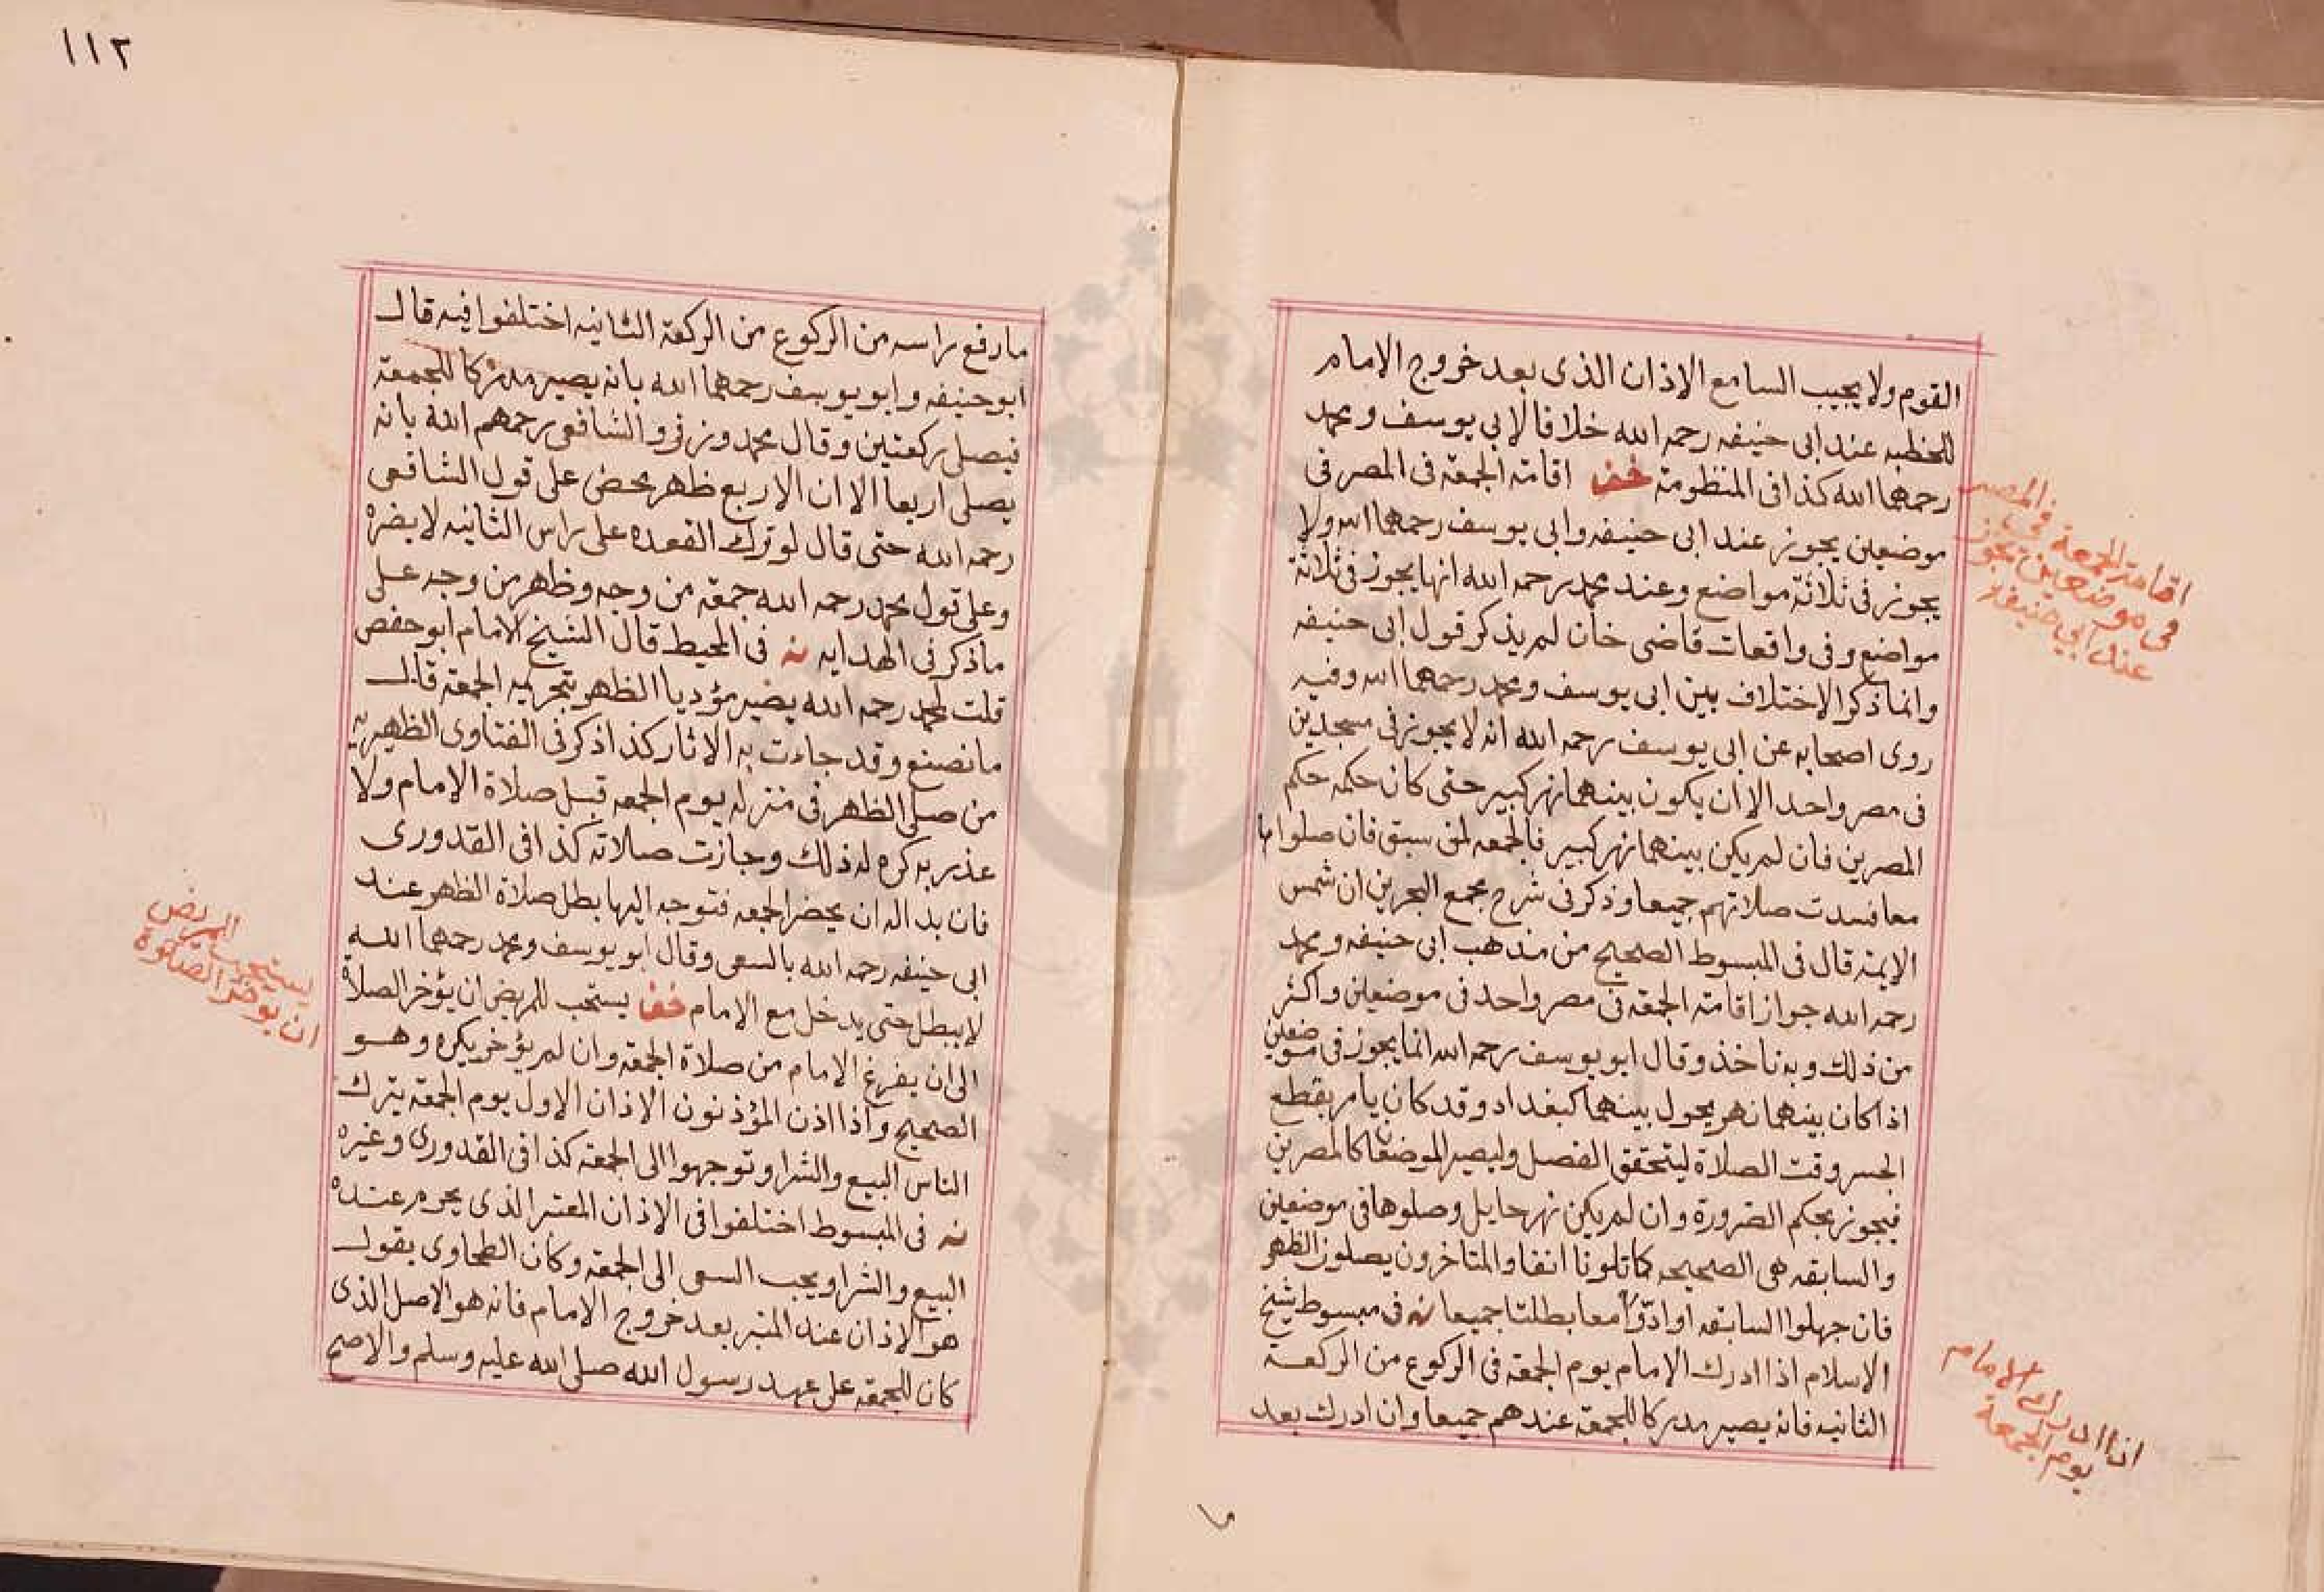 القوم ولا يجيب السامع الاذان الذى بعد خروج الامام
للخطبه عند ابى حنيفه رحمه الله خلافا لابي يوسف ومحمد
رحمهما الله كذا فى المنظومة خف اقامة الجمعة فى المصر فى
موضعين يجوز عند ابى حنيفه وابى يوسف رحمهما الله ولا
يجوز فى ثلاثة مواضع وعند محمد رحمه الله انها يجوز فى ثلاثة
مواضع وفى واقعات قاضى خان لم يذكر قول ابى حنيفه
وانما ذكر الاختلاف بين ابى يوسف ومحمد رحمهما الله وفيه
روى اصحابه عن ابى يوسف رحمه الله انه لا يجوز فى مسجدين
فى مصر واحد الا ان يكون بينهما نهر كبير حتى كان حكمه حكم
المصرين فان لم يكن بينهما نهر كبير فالجمعه لمن سبق فان صلوا بها
معا فسدت صلاتهم جميعا وذكر فى شرح مجمع البحرين ان شمس
الايمة قال فى المبسوط الصحيح من مذهب ابى حنيفه ومحمد
رحمه الله جواز اقامة الجمعة فى مصر واحد فى موضعين واكثر
من ذلك وبه ناخذ وقال ابو يوسف رحمه الله انما يجوز فى موضعين
اذا كان بينهما نهر يحول بينهما كبغداد وقد كان يامر بقطع
الجسر وقت الصلاة ليتحقق الفصل وليصير الموضعان كالمصرين
فيجوز بحكم الضرورة وان لم يكن نهر حايل وصلوها فى موضعين
والسابقه هى الصحيحه كما تلونا انفا والمتاخرون يصلون الظهر
فان جهلوا السابقه او ادوا معا بطلتا جميعا نه فى مبسوط شيخ
الاسلام اذا ادرك الامام يوم الجمعة فى الركوع من الركعة
الثانيه فانه يصير مدركا للجمعة عندهم جميعا وان ادرك بعد
ما
اقامة الجمعة فى المصر
فى موضعين يجوز
عند ابي حنيفه
اذا ادرك الامام
يوم الجمعة
١١٢
ما رفع راسه من الركوع من الركعة الثانيه اختلفوا فيه قال
ابو حنيفه وابو يوسف رحمهما الله بانه يصير مدركا للجمعة
فيصلى ركعتين وقال محمد وزفر والشافعى رحمهم الله بانه
يصلى اربعا الا ان الاربع ظهر محض على قول الشافعى
رحمه الله حتى قال لو ترك القعده على راس الثانيه لا يضره
وعلى قول محمد رحمه الله جمعة من وجه وظهر من وجه على
ما ذكر فى الهدايه نه فى المحيط قال الشيخ الامام ابو حفص
قلت لمحمد رحمه الله يصير مؤديا الظهر بتحريمه الجمعة قال
ما نصنع وقد جاءت به الاثار كذا ذكر فى الفتاوى الظهيريه
من صلى الظهر فى منزله يوم الجمعه قبل صلاة الامام ولا
عذر به كره له ذلك وجازت صلاته كذا فى القدورى
فان بدا له ان يحضر الجمعه فتوجه اليها بطل صلاة الظهر عند
ابى حنيفه رحمه الله بالسعى وقال ابو يوسف ومحمد رحمهما الله
لا يبطل حتى يدخل مع الامام خف يستحب للمريض ان يؤخر الصلاة
الى ان يفرغ الامام من صلاة الجمعة وان لم يؤخر يكره وهو
الصحيح واذا اذن المؤذنون الاذان الاول يوم الجمعة يترك
الناس البيع والشرا وتوجهوا الى الجمعة كذا فى القدورى وغيره
نه فى المبسوط اختلفوا فى الاذان المعتبر الذى يحرم عنده
البيع والشرا ويجب السعى الى الجمعة وكان الطحاوى يقول
هو الاذان عند المنبر بعد خروج الامام فانه هو الاصل الذى
كان للجمعة على عهد رسول الله صلى الله عليه وسلم والاصح
يستحب المريض
ان يوخر الصلوة